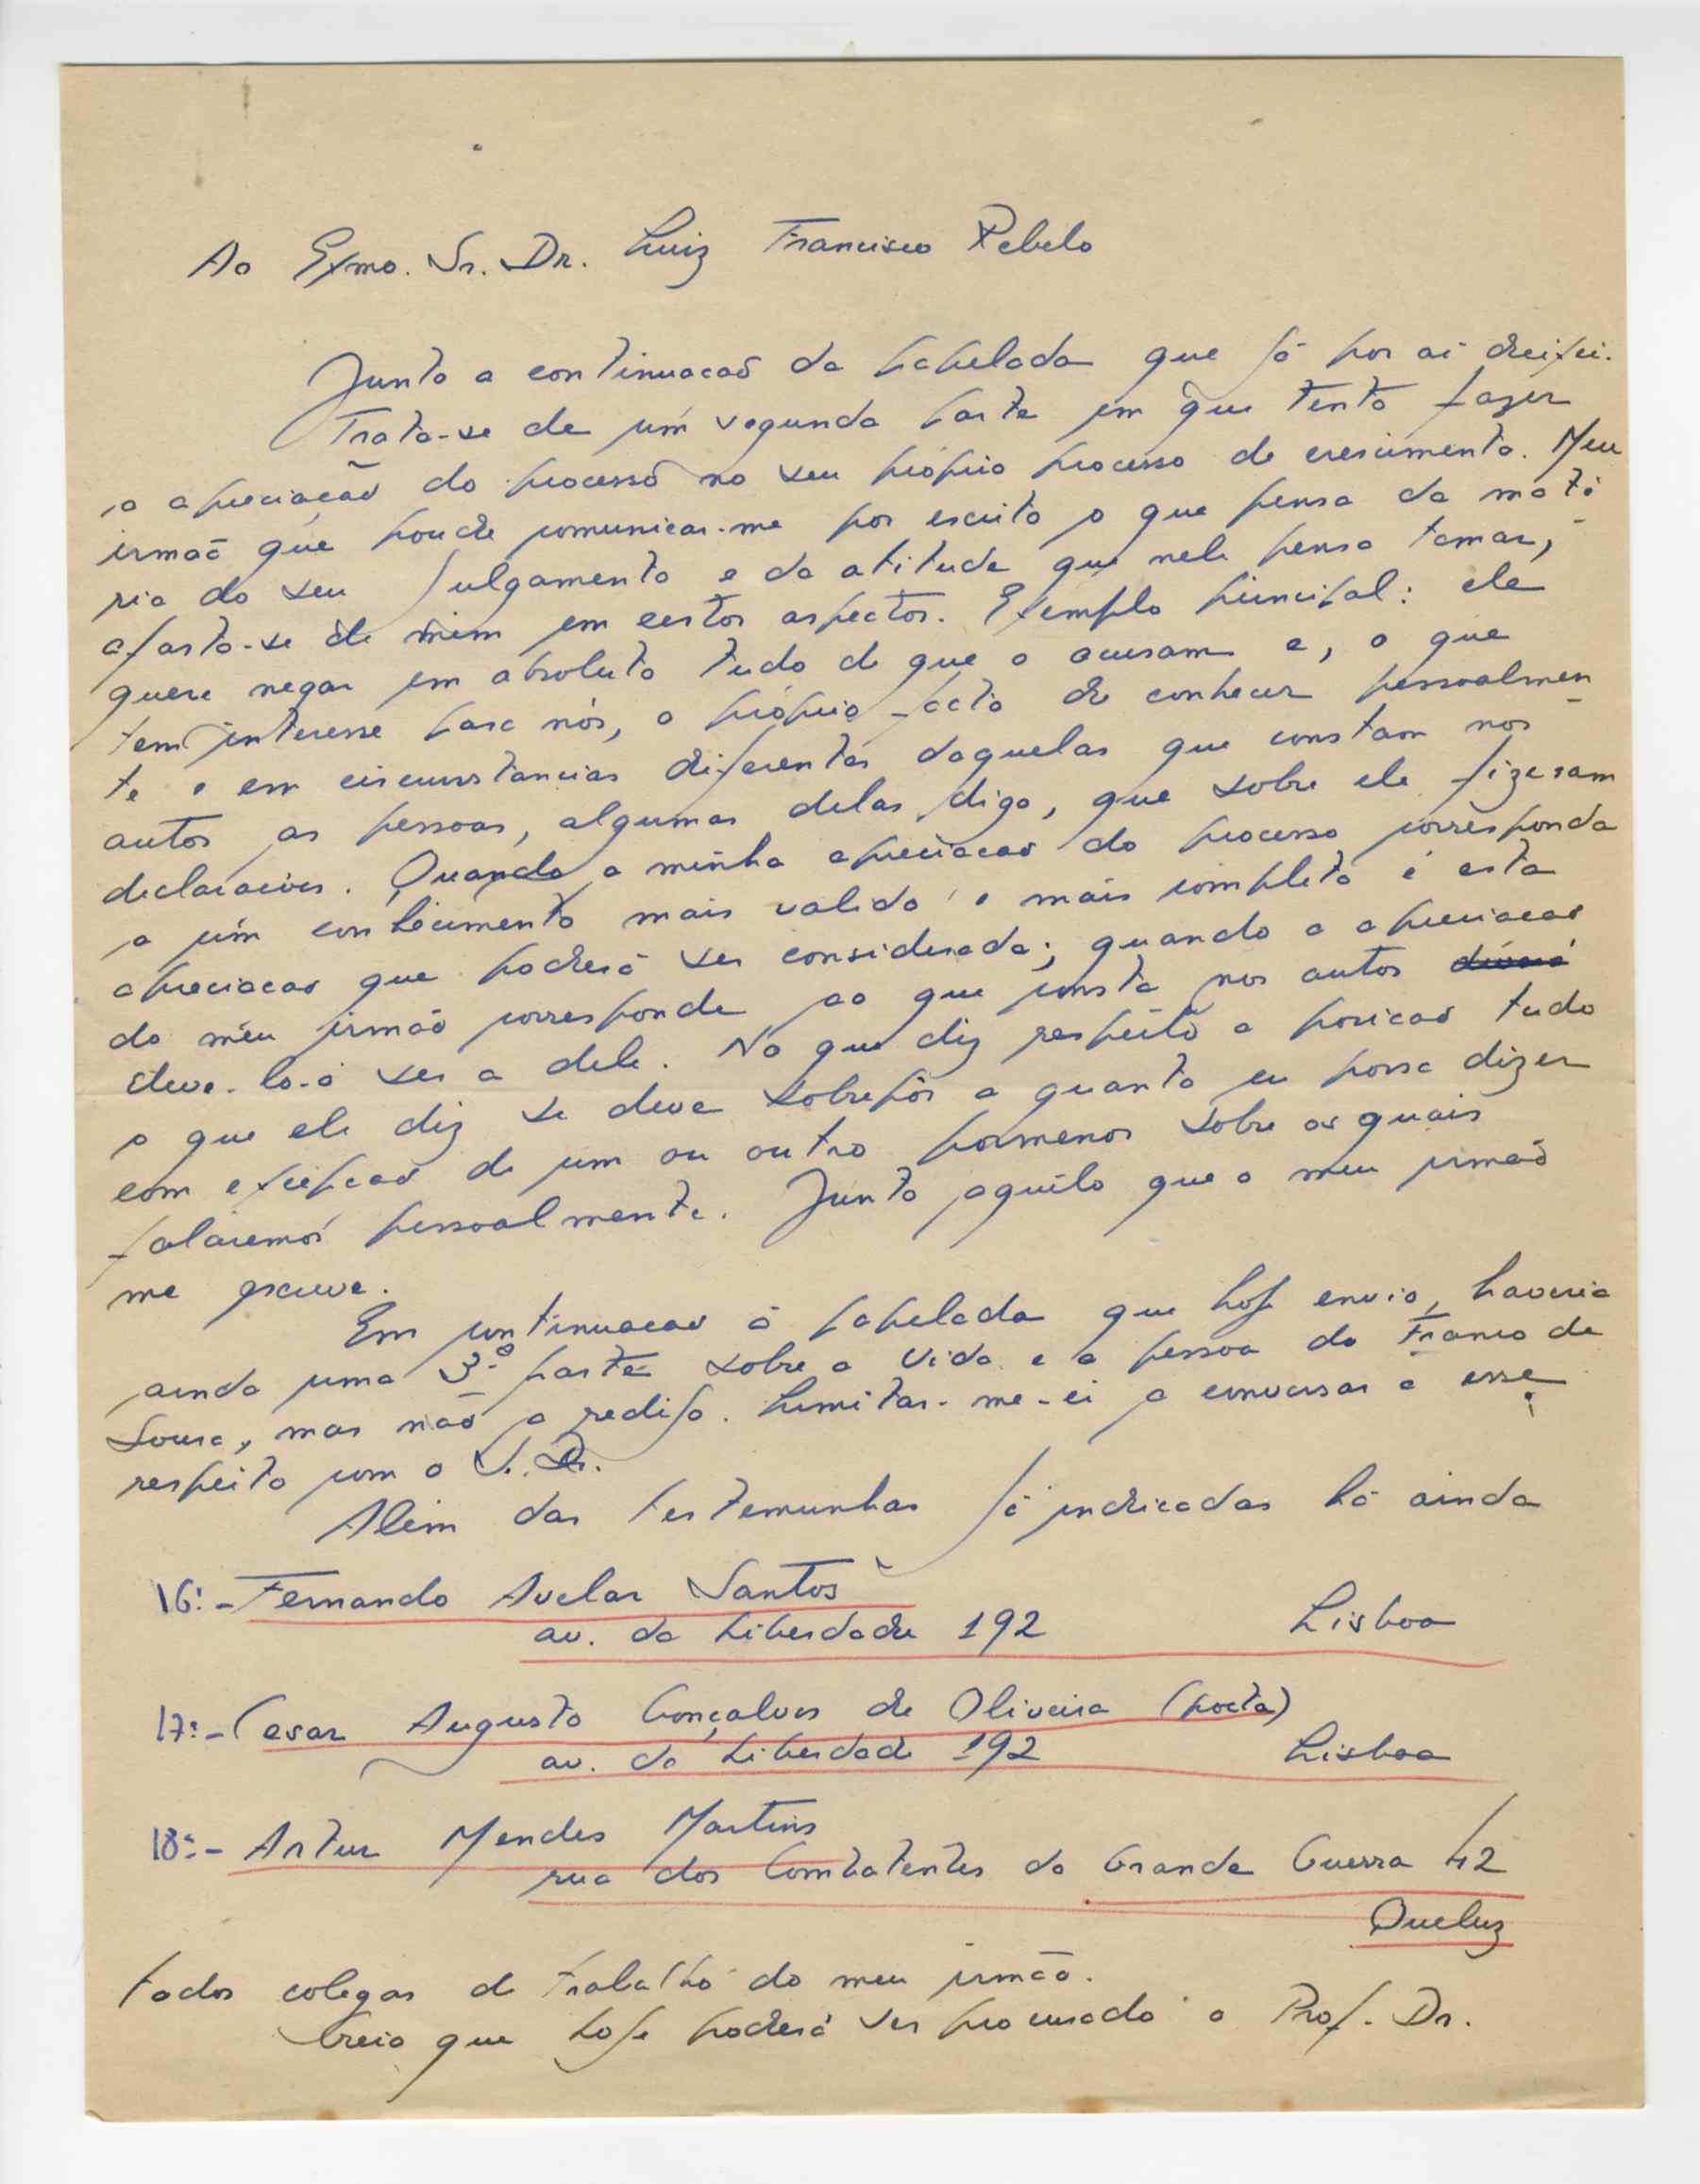 Ao Exmo. Sr. Dr. Luiz Francisco Rebelo
Junto a continuacaõ da papelada que já por aí deixei.
Trata-se de um segunda parte em que tento fazer
a apreciação do processo no seu próprio processo de crescimento. Meu
irmaõ que poude comunicar-me por escrito o que pensa da maté
ria do seu julgamento e da atitude que nele pensa tomar,
afasta-se de mim em certos aspectos. Exemplo principal: ele
quere negar em absoluto tudo de que o acusam e, o que
tem interesse para nós, o próprio facto de conhecer pessoalmen
te e em circunstancias diferentes daquelas que constam nos
autos as pessoas, algumas delas digo, que sobre ele fizeram
declaracões. Quando a minha apreciacao do processo corresponda
a um conhecimento mais valido e mais completo é esta
apreciacao que poderá ser considerada; quando a apreciacao
do meu irmaõ corresponde ao que consta nos autos
deve-lo-á ser a dele. No que diz respeito a posicao tudo
o que ele diz se deve sobrepôr a quanto eu possa dizer
com excepcao de um ou outro pormenor sobre os quais
falaremos pessoalmente. Junto aquilo que o meu irmaõ
me escreve.
Em continuacao á papelada que hoje envio, haveria
ainda uma 3.ª parte sobre a vida e a pessoa do Franco de
Sousa, mas não a redijo. Limitar-me-ei a conversar a esse
respeito com o S. Dr.
Além das testemunhas já indicadas há ainda
16:- Fernando Avelar Santos
av. da Liberdade 192 Lisboa
17:- Cesar Augusto Gonçalves de Oliveira (poeta)
av. da Liberdade 192 Lisboa
18:- Artur Mendes Martins
rua dos Combatentes da Grande Guerra 42
Queluz
todos colegas de trabalho do meu irmão.
Creio que hoje poderá ser procurado o Prof. Dr.